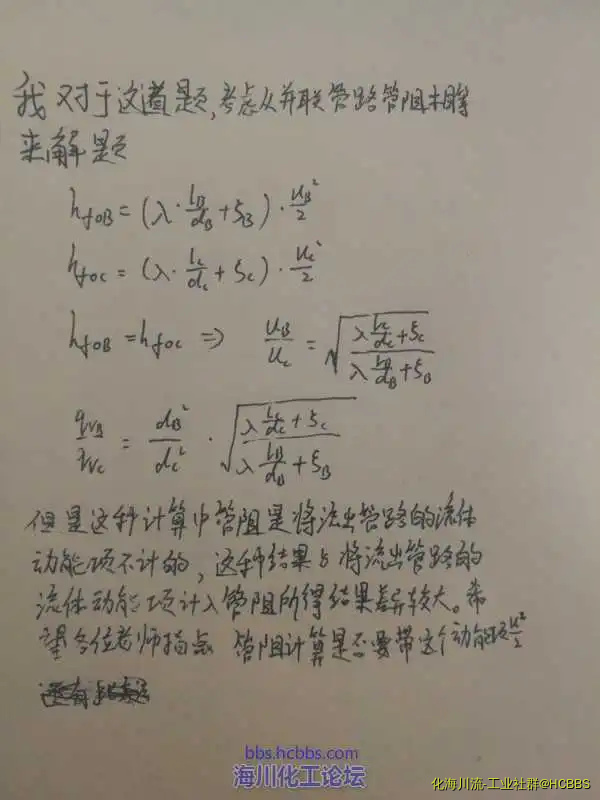 我对于这道题,考虑从并联管路管阻相等
来解题
h_{fOB} = (λ·\frac{l_B}{d_B}+ξ_B)·\frac{u_B^2}{2}
h_{fOC} = (λ·\frac{l_C}{d_C}+ξ_C)·\frac{u_C^2}{2}
h_{fOB} = h_{fOC} ⇒ \frac{u_B}{u_C} = \sqrt{\frac{λ\frac{l_C}{d_C}+ξ_C}{λ\frac{l_B}{d_B}+ξ_B}}
\frac{q_{VB}}{q_{VC}} = \frac{d_B^2}{d_C^2}·\sqrt{\frac{λ\frac{l_C}{d_C}+ξ_C}{λ\frac{l_B}{d_B}+ξ_B}}
但是这种计算中管阻是将流出管路的流体
动能项不计的,这种结果与将流出管路的
流体动能项计入管阻所得结果差异较大。希
望各位老师指点 管阻计算是否要带这个动能项\frac{u^2}{2}
还有
bbs.hcbbs.com
海川化工论坛
化海川流-工业社群@HCBBS